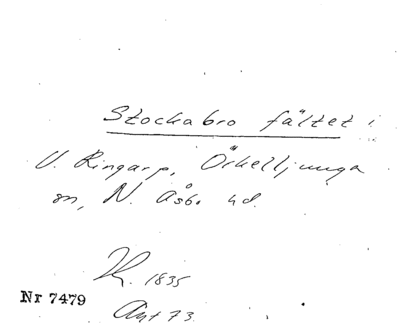 Stockabro fältet i
V. Ringarp, Örkelljunga
sn, N. Åsbo hd.
K. 1835
Nr 7479
Ant 73